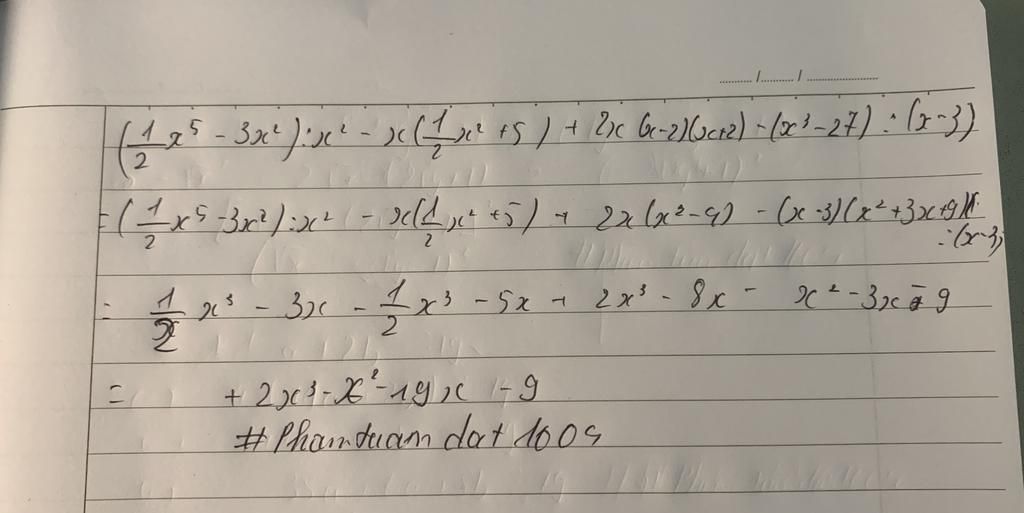 ........... / ........... / ........................
(1/2 x⁵ - 3x²) : x² - x(1/2 x² + 5) + 2x(x-2)(x+2) - (x³ - 27) : (x-3)
= (1/2 x⁵ - 3x²) : x² - x(1/2 x² + 5) + 2x(x² - 4) - (x-3)(x² + 3x + 9)
: (x-3)
= 1/2 x³ - 3x - 1/2 x³ - 5x + 2x³ - 8x - x² - 3x - 9
= + 2x³ - x² - 19x - 9
# Phamtuam dat 1009